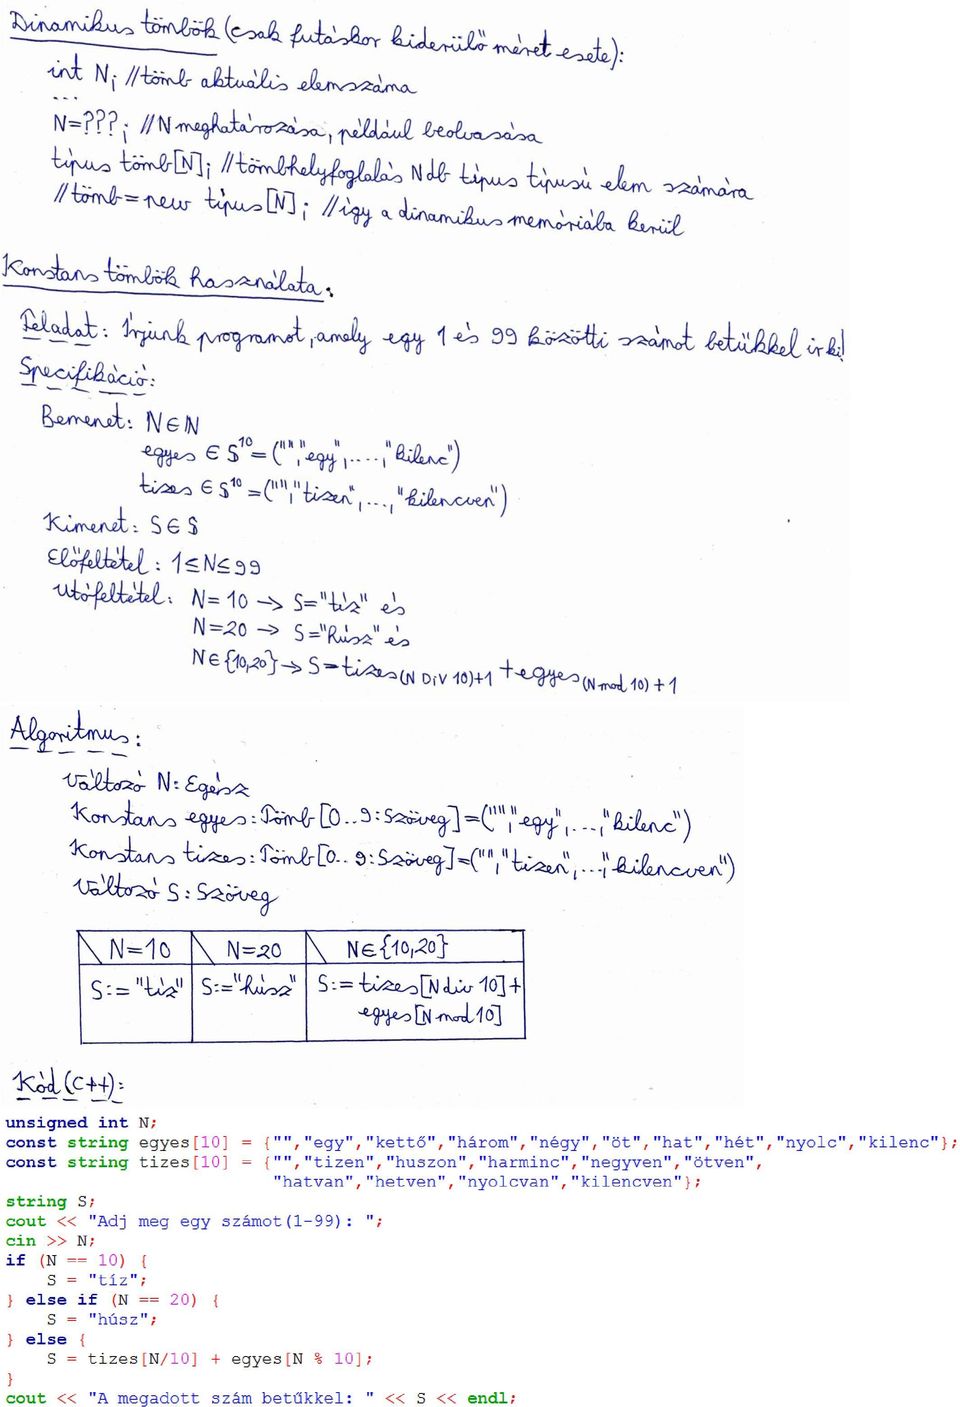 Dinamikus tömbök (csak futáskor kiderülő méret esete):
int N; //tömb aktuális elemszáma
...
N=???; //N meghatározása, például beolvasása
típus tömb[N]; //tömbhelyfoglalás N db típus típusú elem számára
//tömb=new típus[N]; //így a dinamikus memóriába kerül
Konstans tömbök használata:
Feladat: Írjunk programot, amely egy 1 és 99 közötti számot betűkkel ír ki!
Specifikáció:
Bemenet: N∈ℕ
egyes ∈ 𝕊^10=("","egy",....,"kilenc")
tizes ∈ 𝕊^10=("","tizen",...,"kilencven")
Kimenet: S∈𝕊
Előfeltétel: 1≤N≤99
Utófeltétel: N=10 -> S="tíz" és
N=20 -> S="húsz" és
N∈{10,20} -> S=tizes(N DIV 10)+1 + egyes(N mod 10)+1
Algoritmus:
Változó N: Egész
Konstans egyes: Tömb[0..9: Szöveg]=("","egy",...,"kilenc")
Konstans tizes: Tömb[0..9: Szöveg]=("","tizen",...,"kilencven")
Változó S: Szöveg
N=10 N=20 N∈{10,20}
S:="tíz" S:="húsz" S:=tizes[N div 10]+
egyes[N mod 10]
Kód (C++):
unsigned int N;
const string egyes[10] = {"","egy","kettő","három","négy","öt","hat","hét","nyolc","kilenc"};
const string tizes[10] = {"","tizen","huszon","harminc","negyven","ötven",
"hatvan","hetven","nyolcvan","kilencven"};
string S;
cout << "Adj meg egy számot(1-99): ";
cin >> N;
if (N == 10) {
S = "tíz";
} else if (N == 20) {
S = "húsz";
} else {
S = tizes[N/10] + egyes[N % 10];
}
cout << "A megadott szám betűkkel: " << S << endl;